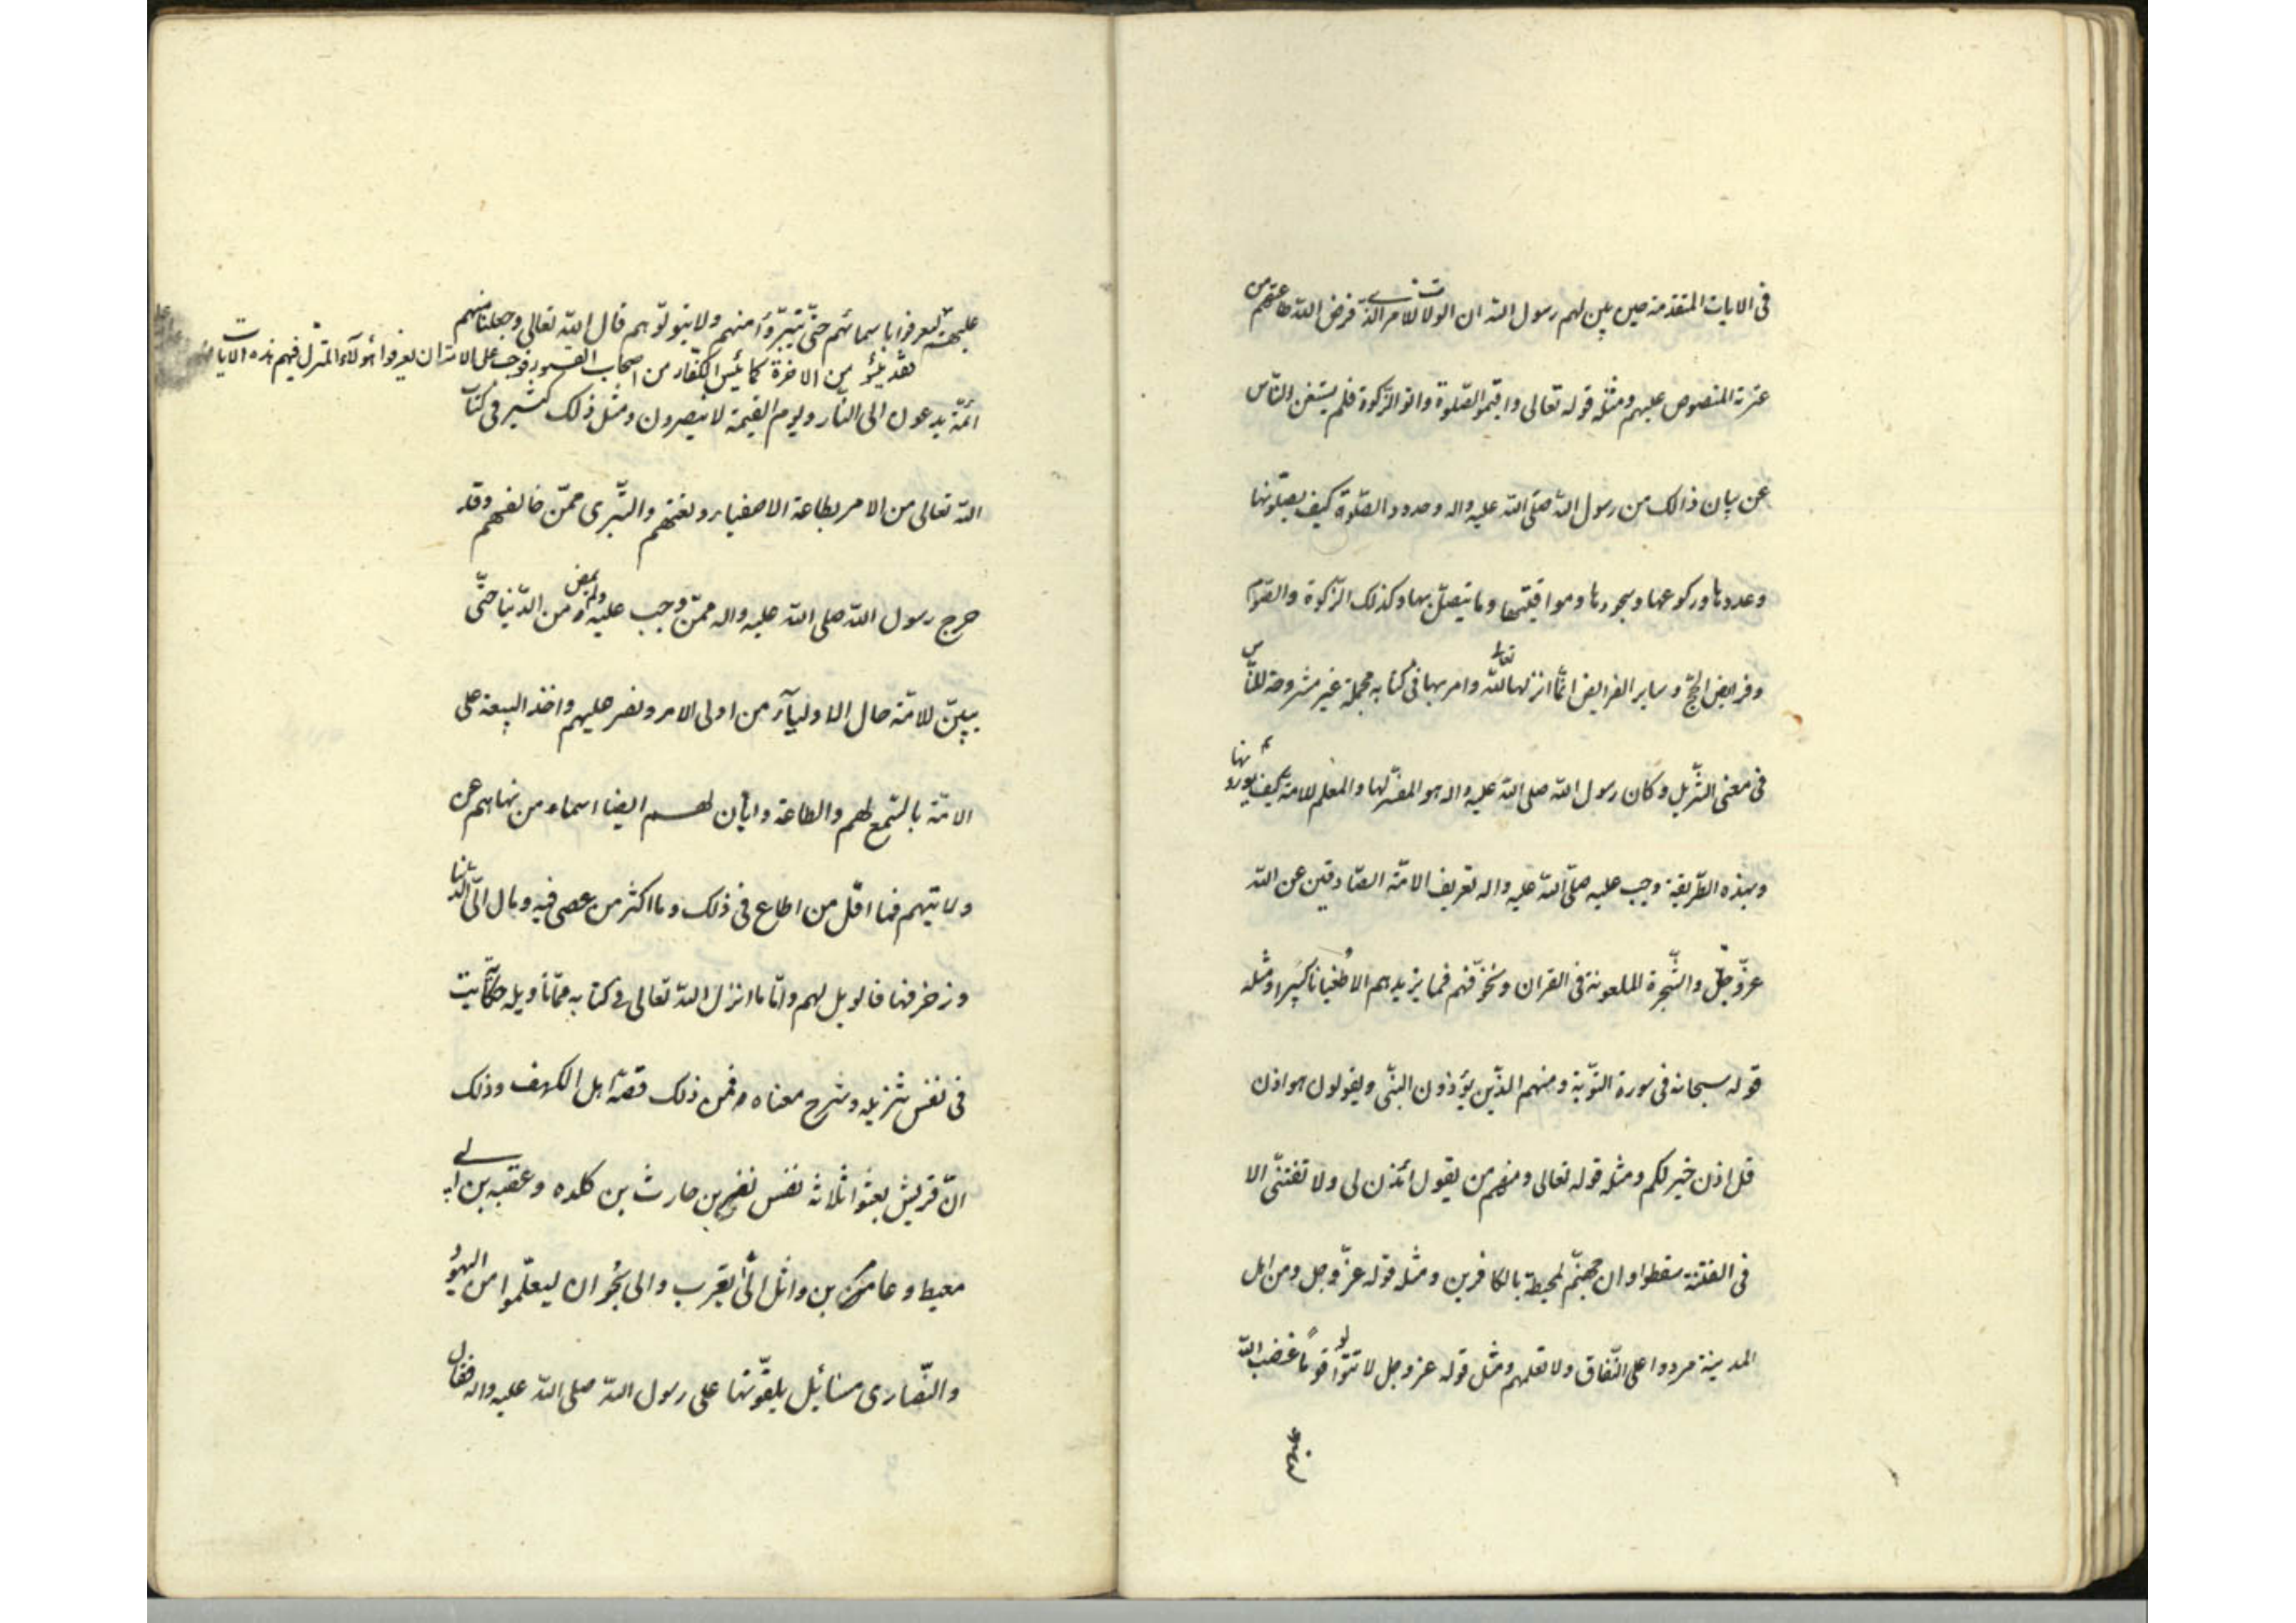 فى الايات المتقدمة حين بين لهم رسول الله ان الولاة للامر الذين فرض الله طاعتهم من
عترته المنصوص عليهم ومثله قوله تعالى واقيموا الصلوة واتوا الزكوة فلم يستغن الناس
عن بيان ذالك من رسول الله صلى الله عليه واله وحدود الصلوة كيف يصلونها
وعددها وركوعها وسجودها ومواقيتها وما يتصل بها وكذلك الزكوة والصوم
وفرايض الحج وساير الفرايض انما انزلها الله تعالى وامر بها فى كتابه مجملة غير مشروحة للناس
فى معنى التنزيل وكان رسول الله صلى الله عليه واله هو المفسر لها والمعلم للامة كيف يؤدونها
وبهذه الطريقة وجب عليه صلى الله عليه واله تعريف الامة الصادقين عن الله
عز وجل والشجرة الملعونة فى القران ونخوفهم فما يزيدهم الا طغيانا كبيرا ومثله
قوله سبحانه فى سورة التوبة ومنهم الذين يؤذون النبى ويقولون هو اذن
قل اذن خير لكم ومثله قوله تعالى ومنهم من يقول ائذن لى ولا تفتنى الا
فى الفتنة سقطوا وان جهنم لمحيطة بالكافرين ومثله قوله عز وجل ومن اهل
المدينة مردوا على النفاق ولا تعلمهم ومثل قوله عز وجل لا تتولوا قوما غضب الله
عليهم قد يئسوا من الاخرة كما يئس الكفار من اصحاب القبور فوجب على الامة ان يعرفوا هؤلاء المنزل فيهم هذه الايات
ليعرفوا باسمائهم حتى يتبرؤا منهم ولا يتولوهم قال الله تعالى وجعلنا منهم
ائمة يدعون الى النار ويوم القيمة لا ينصرون ومثل ذلك كثير فى كتاب
الله تعالى من الامر بطاعة الاصفياء ونعتهم والتبرى ممن خالفهم وقد
خرج رسول الله صلى الله عليه واله مما وجب عليه ولم يمض من الدنيا حتى
بين للامة حال الاولياء من اولى الامر ونص عليهم واخذ البيعة على
الامة بالسمع لهم والطاعة وابان لهم ايضا اسماء من نهاهم عن
ولايتهم فما اقل من اطاع فى ذلك وما اكثر من عصى فيه ومال الى الدنيا
وزخرفها فالويل لهم واما ما انزل الله تعالى فى كتابه مما تاويله حكاية
فى نفس تنزيله وشرح معناه فمن ذلك قصة اهل الكهف وذلك
ان قريش بعثوا ثلاثة نفس نضر بن حارث بن كلده وعقبه بن ابى
معيط وعامر بن واثل الى يثرب والى نجران ليتعلموا من اليهود
والنصارى مسائل يلقونها على رسول الله صلى الله عليه واله فقال